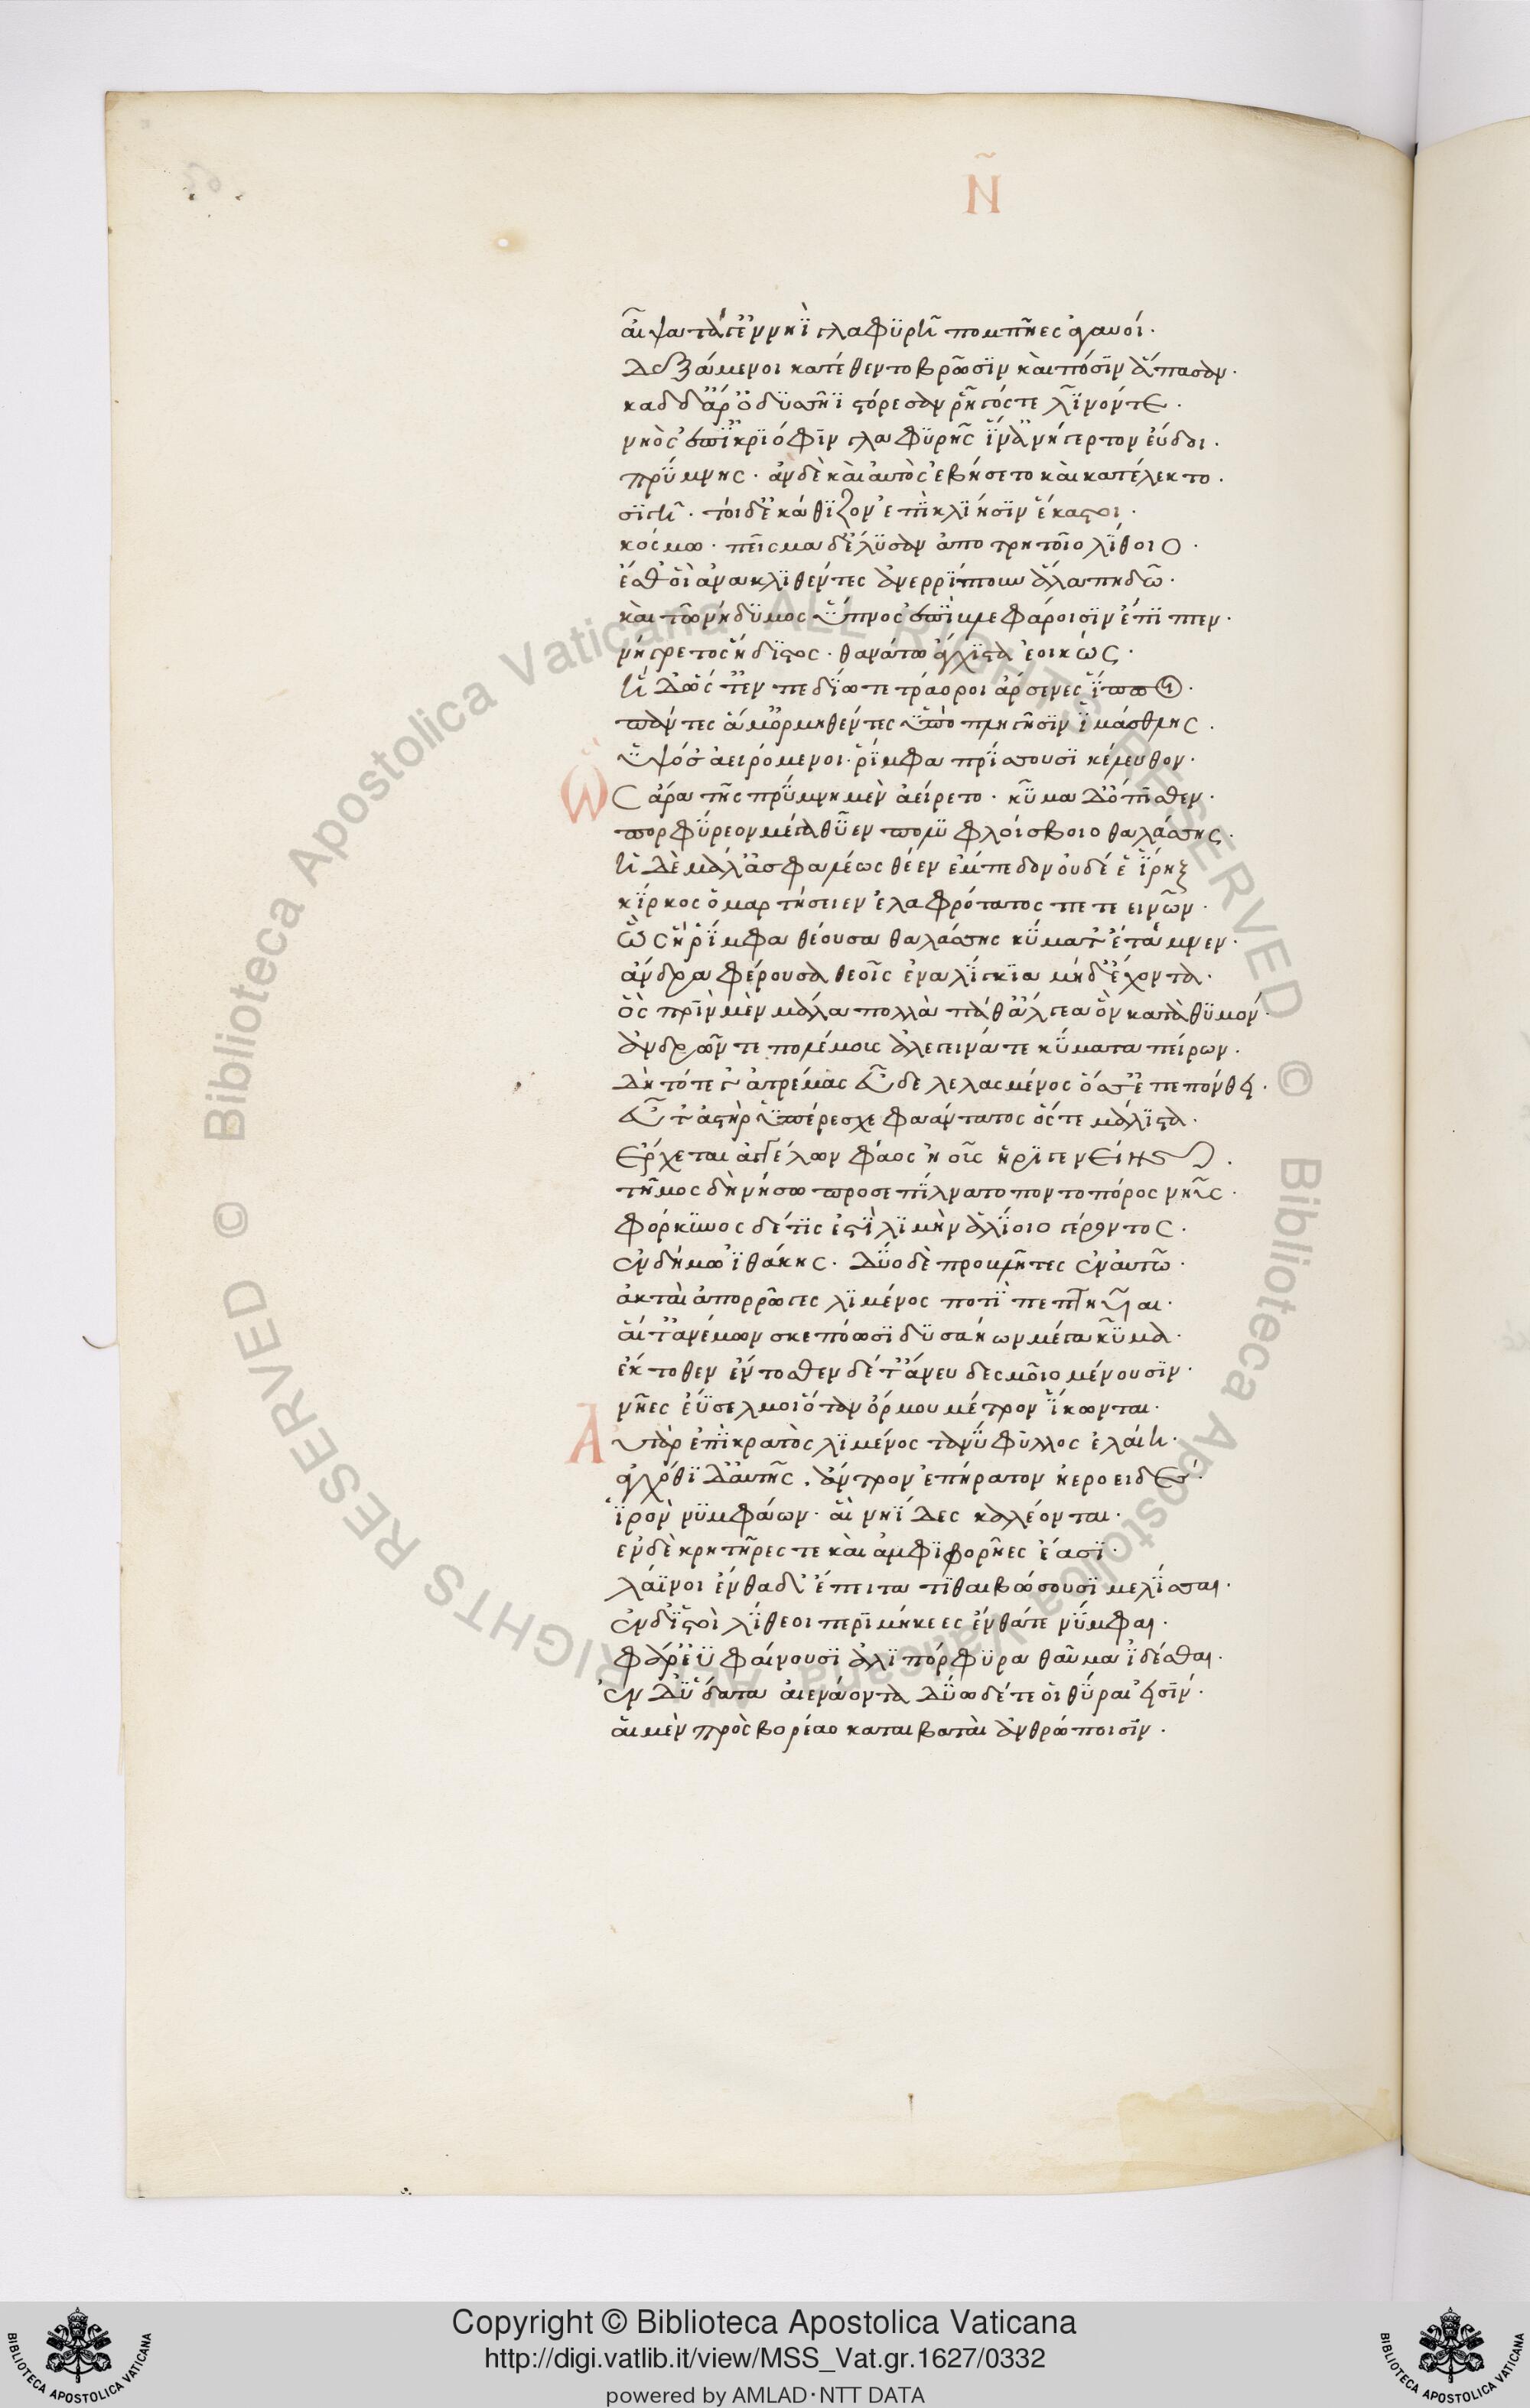 Ν
αἶψα τά γ' ἐν νηῒ γλαφυρῇ πομπῆες ἀγαυοί·
δεξάμενοι κατέθεντο βρῶσιν καὶ πόσιν ἅπασαν·
καδδ' ἄρ' ὀδυσσῆϊ στόρεσαν ῥῆγός τε λῖνόντε·
νηὸς ἐπ' ἰκριόφιν γλαφυρῆς ἵνα νήγρετον εὕδοι·
πρύμνης· ἂν δὲ καὶ αὐτὸς ἐβήσετο καὶ κατέλεκτο·
σιγῇ· τοὶ δὲ κάθιζον ἐπὶ κληῗσιν ἕκαστοι·
κόσμω· πεῖσμα δ' ἔλυσαν ἀπο τρητοῖο λίθοιο·
ἔνθ' οἳ ἀνακλιθέντες ἀνερρίπτουν ἅλα πηδῶ·
καὶ τῶ νήδυμος ὕπνος ἐπὶ βλεφάροισιν ἔπιπτεν·
νήγρετος ἥδιστος· θανάτω ἄγχιστα ἐοικώς·
ἡ δ' ὥς τ' ἐν πεδίω τετράοροι ἄρσενες ἵπποι·
πάντες ἅμ' ὁρμηθέντες ὑπὸ πληγῆσιν ἱμάσθλης·
ὑψόσ' ἀειρόμενοι· ῥίμφα πρήσσουσι κέλευθον·
Ὣς ἄρα τῆς πρύμνη μὲν ἀείρετο· κῦμα δ' ὄπισθεν·
πορφύρεον μέγα θῦεν πολυφλοίσβοιο θαλάσσης·
ἡ δὲ μάλ' ἀσφαλέως θέεν ἔμπεδον οὐδέ κ' ἴρηξ
κίρκος ὁμαρτήσειεν ἐλαφρότατος πετεεινῶν·
ὣς ἡ ῥίμφα θέουσα θαλάσσης κύματ' ἔταμνεν·
ἄνδρα φέρουσα θεοῖς ἐναλίγκια μήδε' ἔχοντα·
ὃς πρὶν μὲν μάλα πολλὰ πάθ' ἄλγεα ὃν κατὰ θυμόν·
ἀνδρῶν τε πολέμους ἀλεγεινά τε κύματα πείρων·
δὴ τότε γ' ἀτρέμας εὗδε λελασμένος ὅσσ' ἐπεπόνθει·
εὖτ' ἀστὴρ ὑπέρεσχε φαάντατος ὅς τε μάλιστα·
ἔρχεται ἀγγέλων φάος ἠοῦς ἠριγενείης·
τῆμος δὴ νήσω προσεπίλνατο ποντοπόρος νηῦς·
φόρκυνος δέ τις ἐστὶ λιμὴν ἁλίοιο γέροντος·
ἐν δήμω ἰθάκης· δύο δὲ προβλῆτες ἐν αὐτῶ·
ἀκταὶ ἀπορρῶγες λιμένος ποτὶ πεπτηυῖαι·
αἵ τ' ἀνέμων σκεπόωσι δυσαήων μέγα κῦμα·
ἔκτοθεν ἔντοσθεν δέ τ' ἄνευ δεσμοῖο μένουσιν·
νῆες ἐΰσσελμοι ὅταν ὅρμου μέτρον ἵκωνται·
Αὐτὰρ ἐπὶ κρατὸς λιμένος τανύφυλλος ἐλαίη·
ἀγχόθι δ' αὐτῆς. ἄντρον ἐπήρατον ἠεροειδές·
ἱρὸν νυμφάων· αἳ νηϊάδες καλέονται·
ἐν δὲ κρητῆρές τε καὶ ἀμφιφορῆες ἔασι·
λάϊνοι ἔνθα δ' ἔπειτα τιθαιβώσσουσι μέλισσαι·
ἐν δ' ἱστοὶ λίθεοι περιμήκεες ἔνθά τε νύμφαι·
φάρε' ὑφαίνουσι ἁλιπόρφυρα θαῦμα ἰδέσθαι·
ἐν δ' ὕδατα ἀιενάοντα δύω δέ τε οἱ θύραι εἰσίν·
αἱ μὲν πρὸς βορέαο καταιβαταὶ ἀνθρώποισιν·
Biblioteca Apostolica Vaticana ALL RIGHTS RESERVED ©
Biblioteca Apostolica Vaticana ALL RIGHTS RESERVED ©
BIBLIOTECA APOSTOLICA VATICANA
Copyright © Biblioteca Apostolica Vaticana
http://digi.vatlib.it/view/MSS_Vat.gr.1627/0332
powered by AMLAD·NTT DATA
BIBLIOTECA APOSTOLICA VATICANA